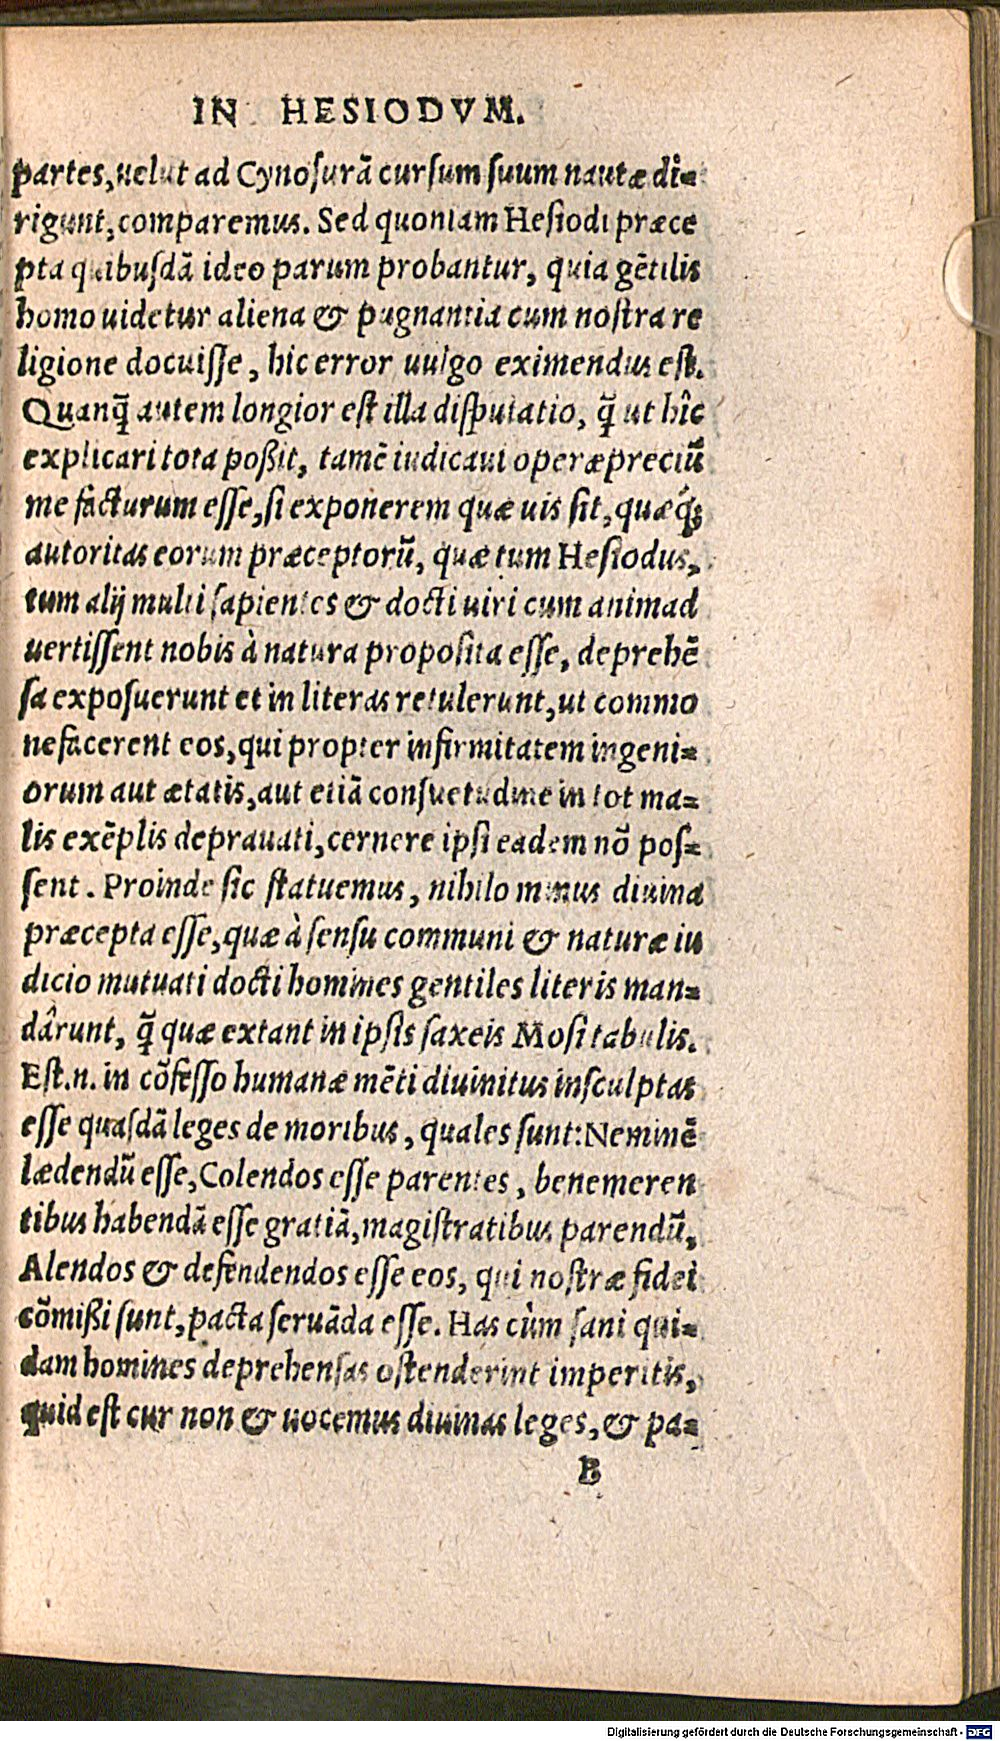 IN HESIODVM.
partes, uelut ad Cynosurā cursum suum nautæ di-
rigunt, comparemus. Sed quoniam Hesiodi præce
pta quibusdā ideo parum probantur, quia gētilis
homo uidetur aliena & pugnantia cum nostra re
ligione docuisse, hic error uulgo eximendus est.
Quanq̃ autem longior est illa disputatio, q̃ ut hîc
explicari tota poßit, tamē iudicaui operæpreciũ
me facturum esse, si exponerem quæ uis sit, quæq́;
autoritas eorum præceptorũ, quæ tum Hesiodus,
tum alij multi sapientes & docti uiri cum animad
uertissent nobis à natura proposita esse, deprehē
sa exposuerunt et in literas retulerunt, ut commo
nefacerent eos, qui propter infirmitatem ingeni-
orum aut ætatis, aut etiā consuetudine in tot ma-
lis exēplis deprauati, cernere ipsi eadem nõ pos-
sent. Proinde sic statuemus, nihilo minus diuina
præcepta esse, quæ à sensu communi & naturæ iu
dicio mutuati docti homines gentiles literis man-
dârunt, q̃ quæ extant in ipsis saxeis Mosi tabulis.
Est.n. in cõfesso humanæ mēti diuinitus insculptas
esse quasdā leges de moribus, quales sunt: Neminē
lædendũ esse, Colendos esse parentes, benemeren
tibus habendā esse gratiā, magistratibus parendũ,
Alendos & defendendos esse eos, qui nostræ fidei
cõmißi sunt, pacta seruāda esse. Has cùm sani qui-
dam homines deprehensas ostenderint imperitis,
quid est cur non & uocemus diuinas leges, & pa-
B
Digitalisierung gefördert durch die Deutsche Forschungsgemeinschaft - DFG